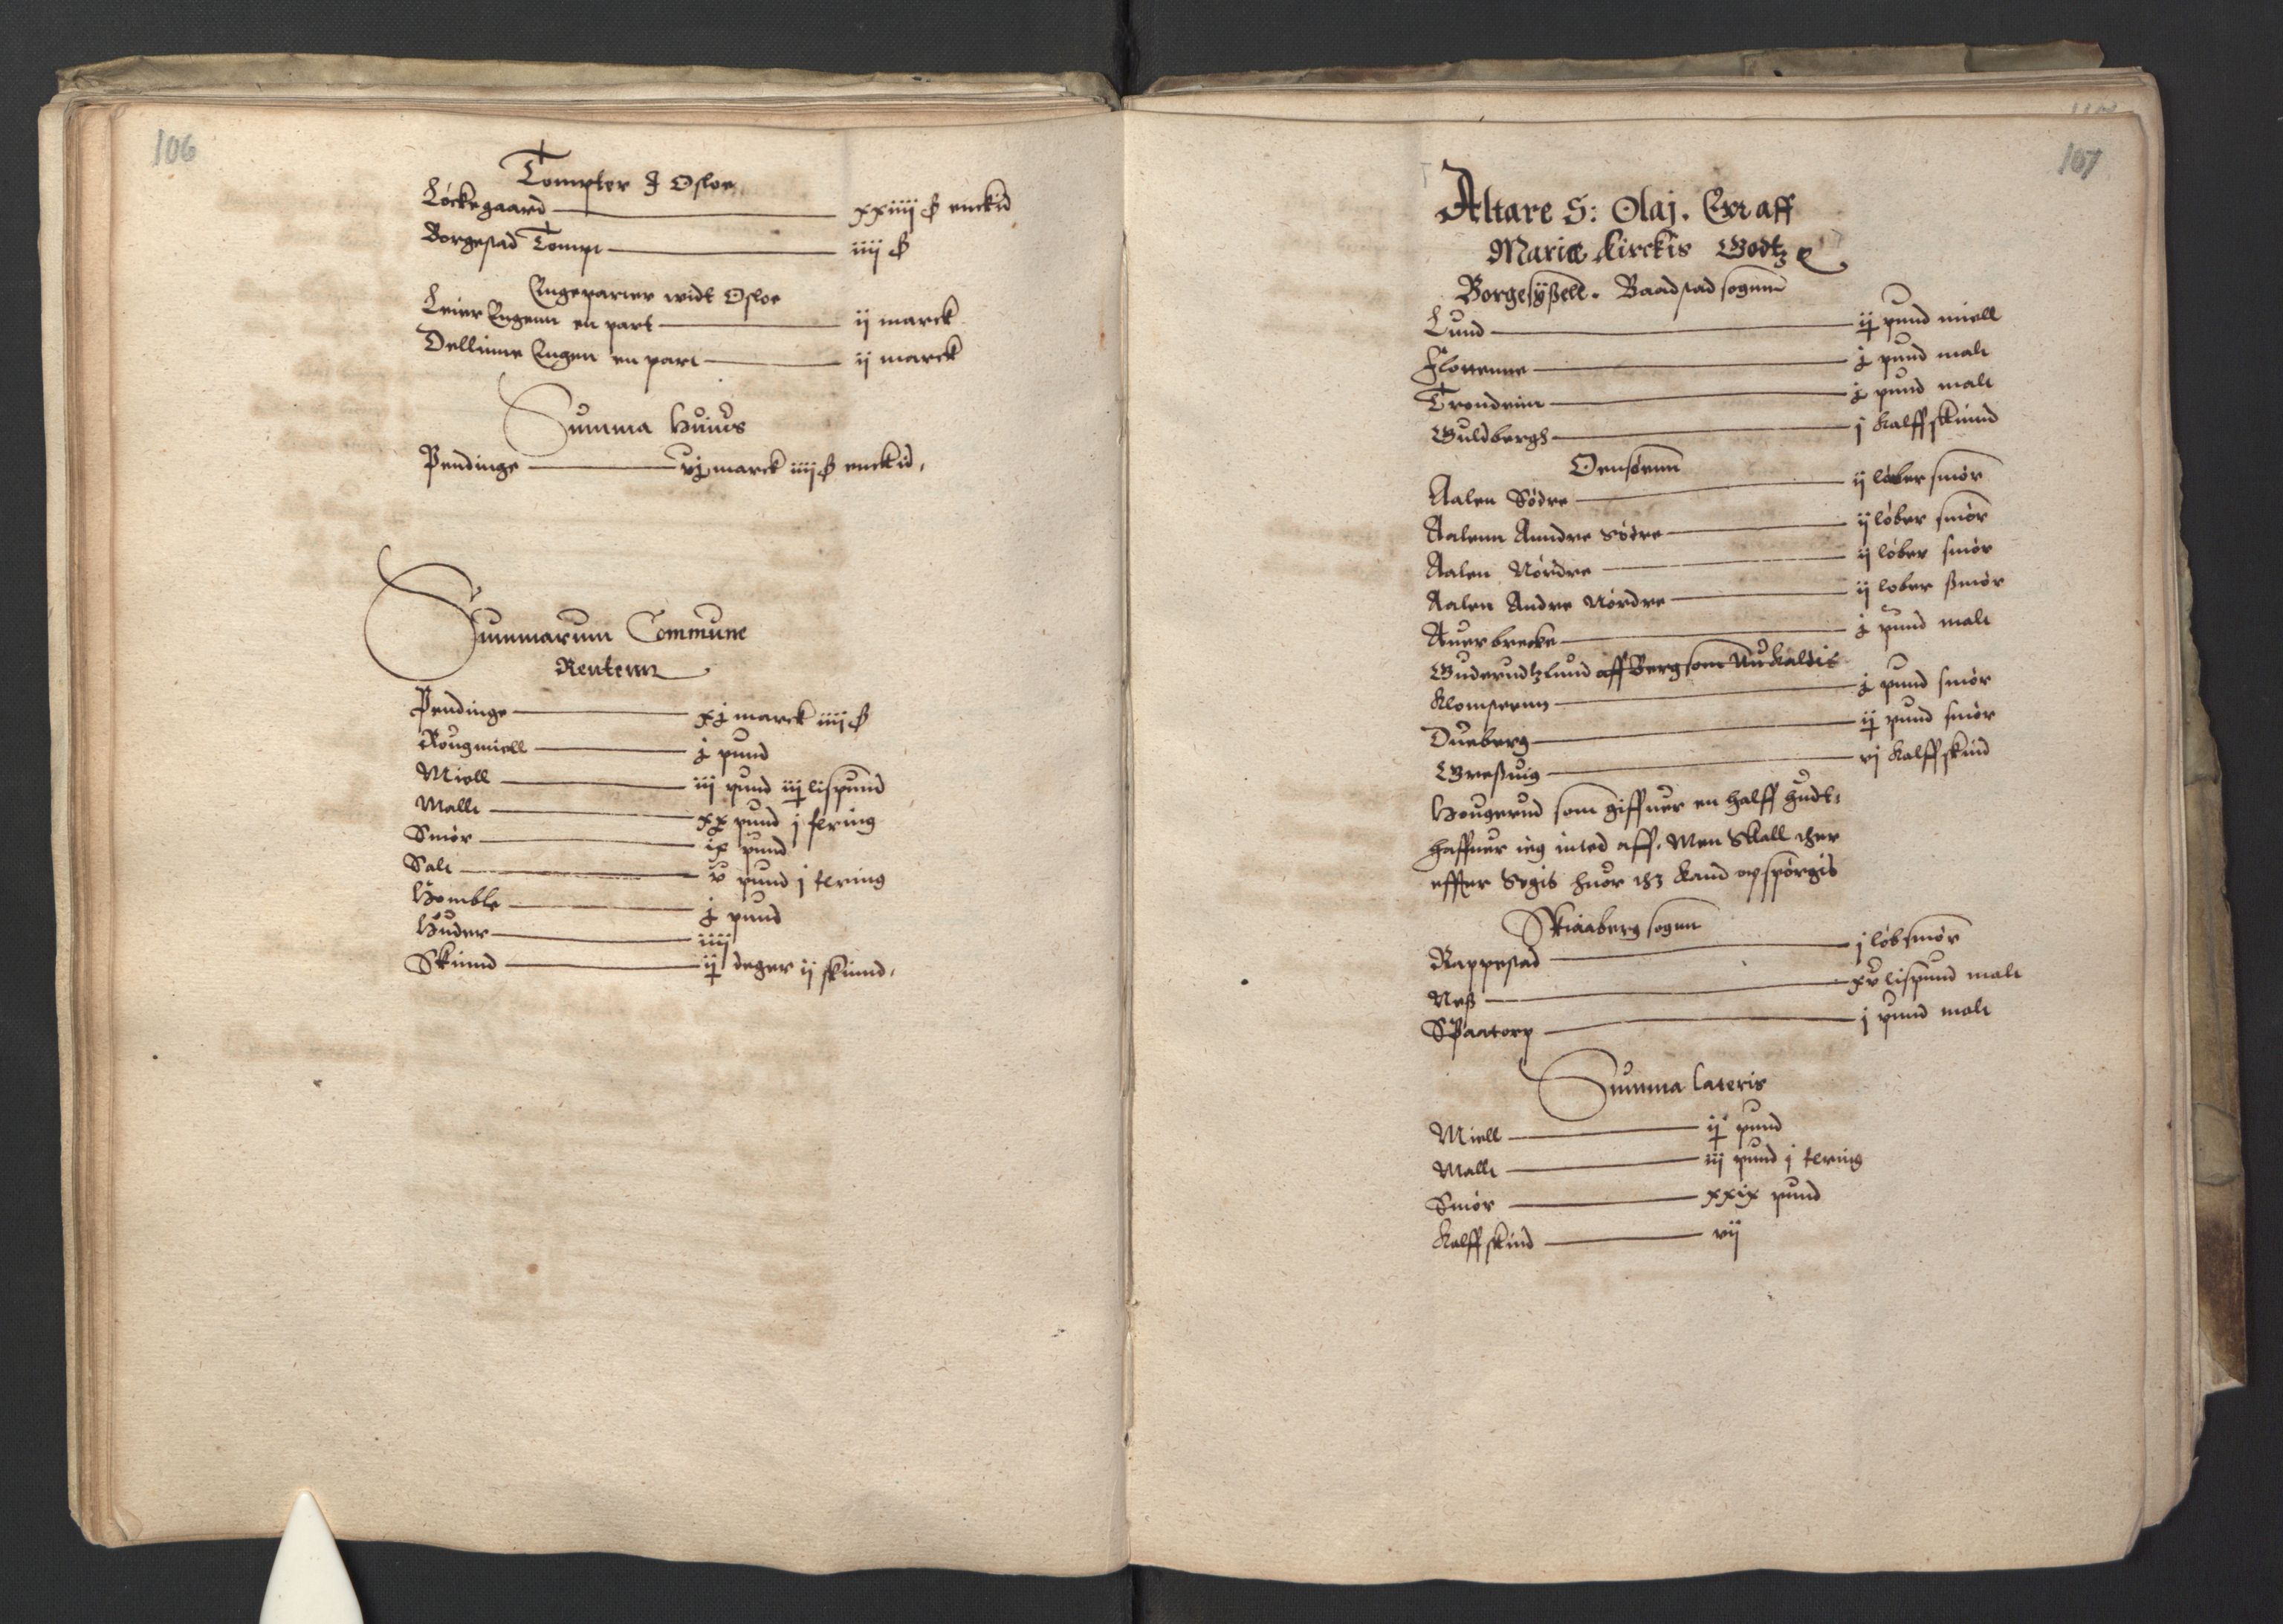 106
Tompter I Osloe
Løckegaard xxiiij ß enckid
Borgestad Tompt iiij ß
Engeparter widt Osloe
Leier Engenn en part ij marck
Dellinne Engen en part ij marck
Summa Huius
Pendinge vj marck iiij ß enckid
Summarum Commune
Rentenn
Pendinge xj marck iiij ß
Rougmiell j pund
Miell iij pund iij lispund
Mallt xx pund j fering
Smør ix pund
Salt v pund j fering
Homble j pund
Huder iiij
Skinnd ij deger ij skinnd
107
Altare S: Olaj. Er aff
Mariæ Kirckis Godtz
Borgesyßell. Baadstad sogunn
Lund ij pund miell
Flottenne j pund malt
Trondrim j pund malt
Guldbergh j kalffskinnd
Onsøenn
Aalen Södre ij løber smør
Aalenn Anndre Södre ij løber smør
Aalen Nørdre ij løber smør
Aalen Andre Nørdre ij lober smør
Auerbrecke j pund malt
Guderudtzlund aff Berg som Nu kaldis
Klomstenn j pund smør
Dueberg ij pund smør
Greßuig vj kalffskind
Hougerud som giffuer en halff hudt:
haffuer ieg inted aff. Men Skall ther
effter Søgis huor thz kand opspørgis
Skiaaberg sogun
Rappestad j løb smør
Neß xv lispund malt
Spaatorp j pund malt
Summa lateris
Miell ij pund
Mallt iij pund j fering
Smør xxix pund
Kalffskind vij